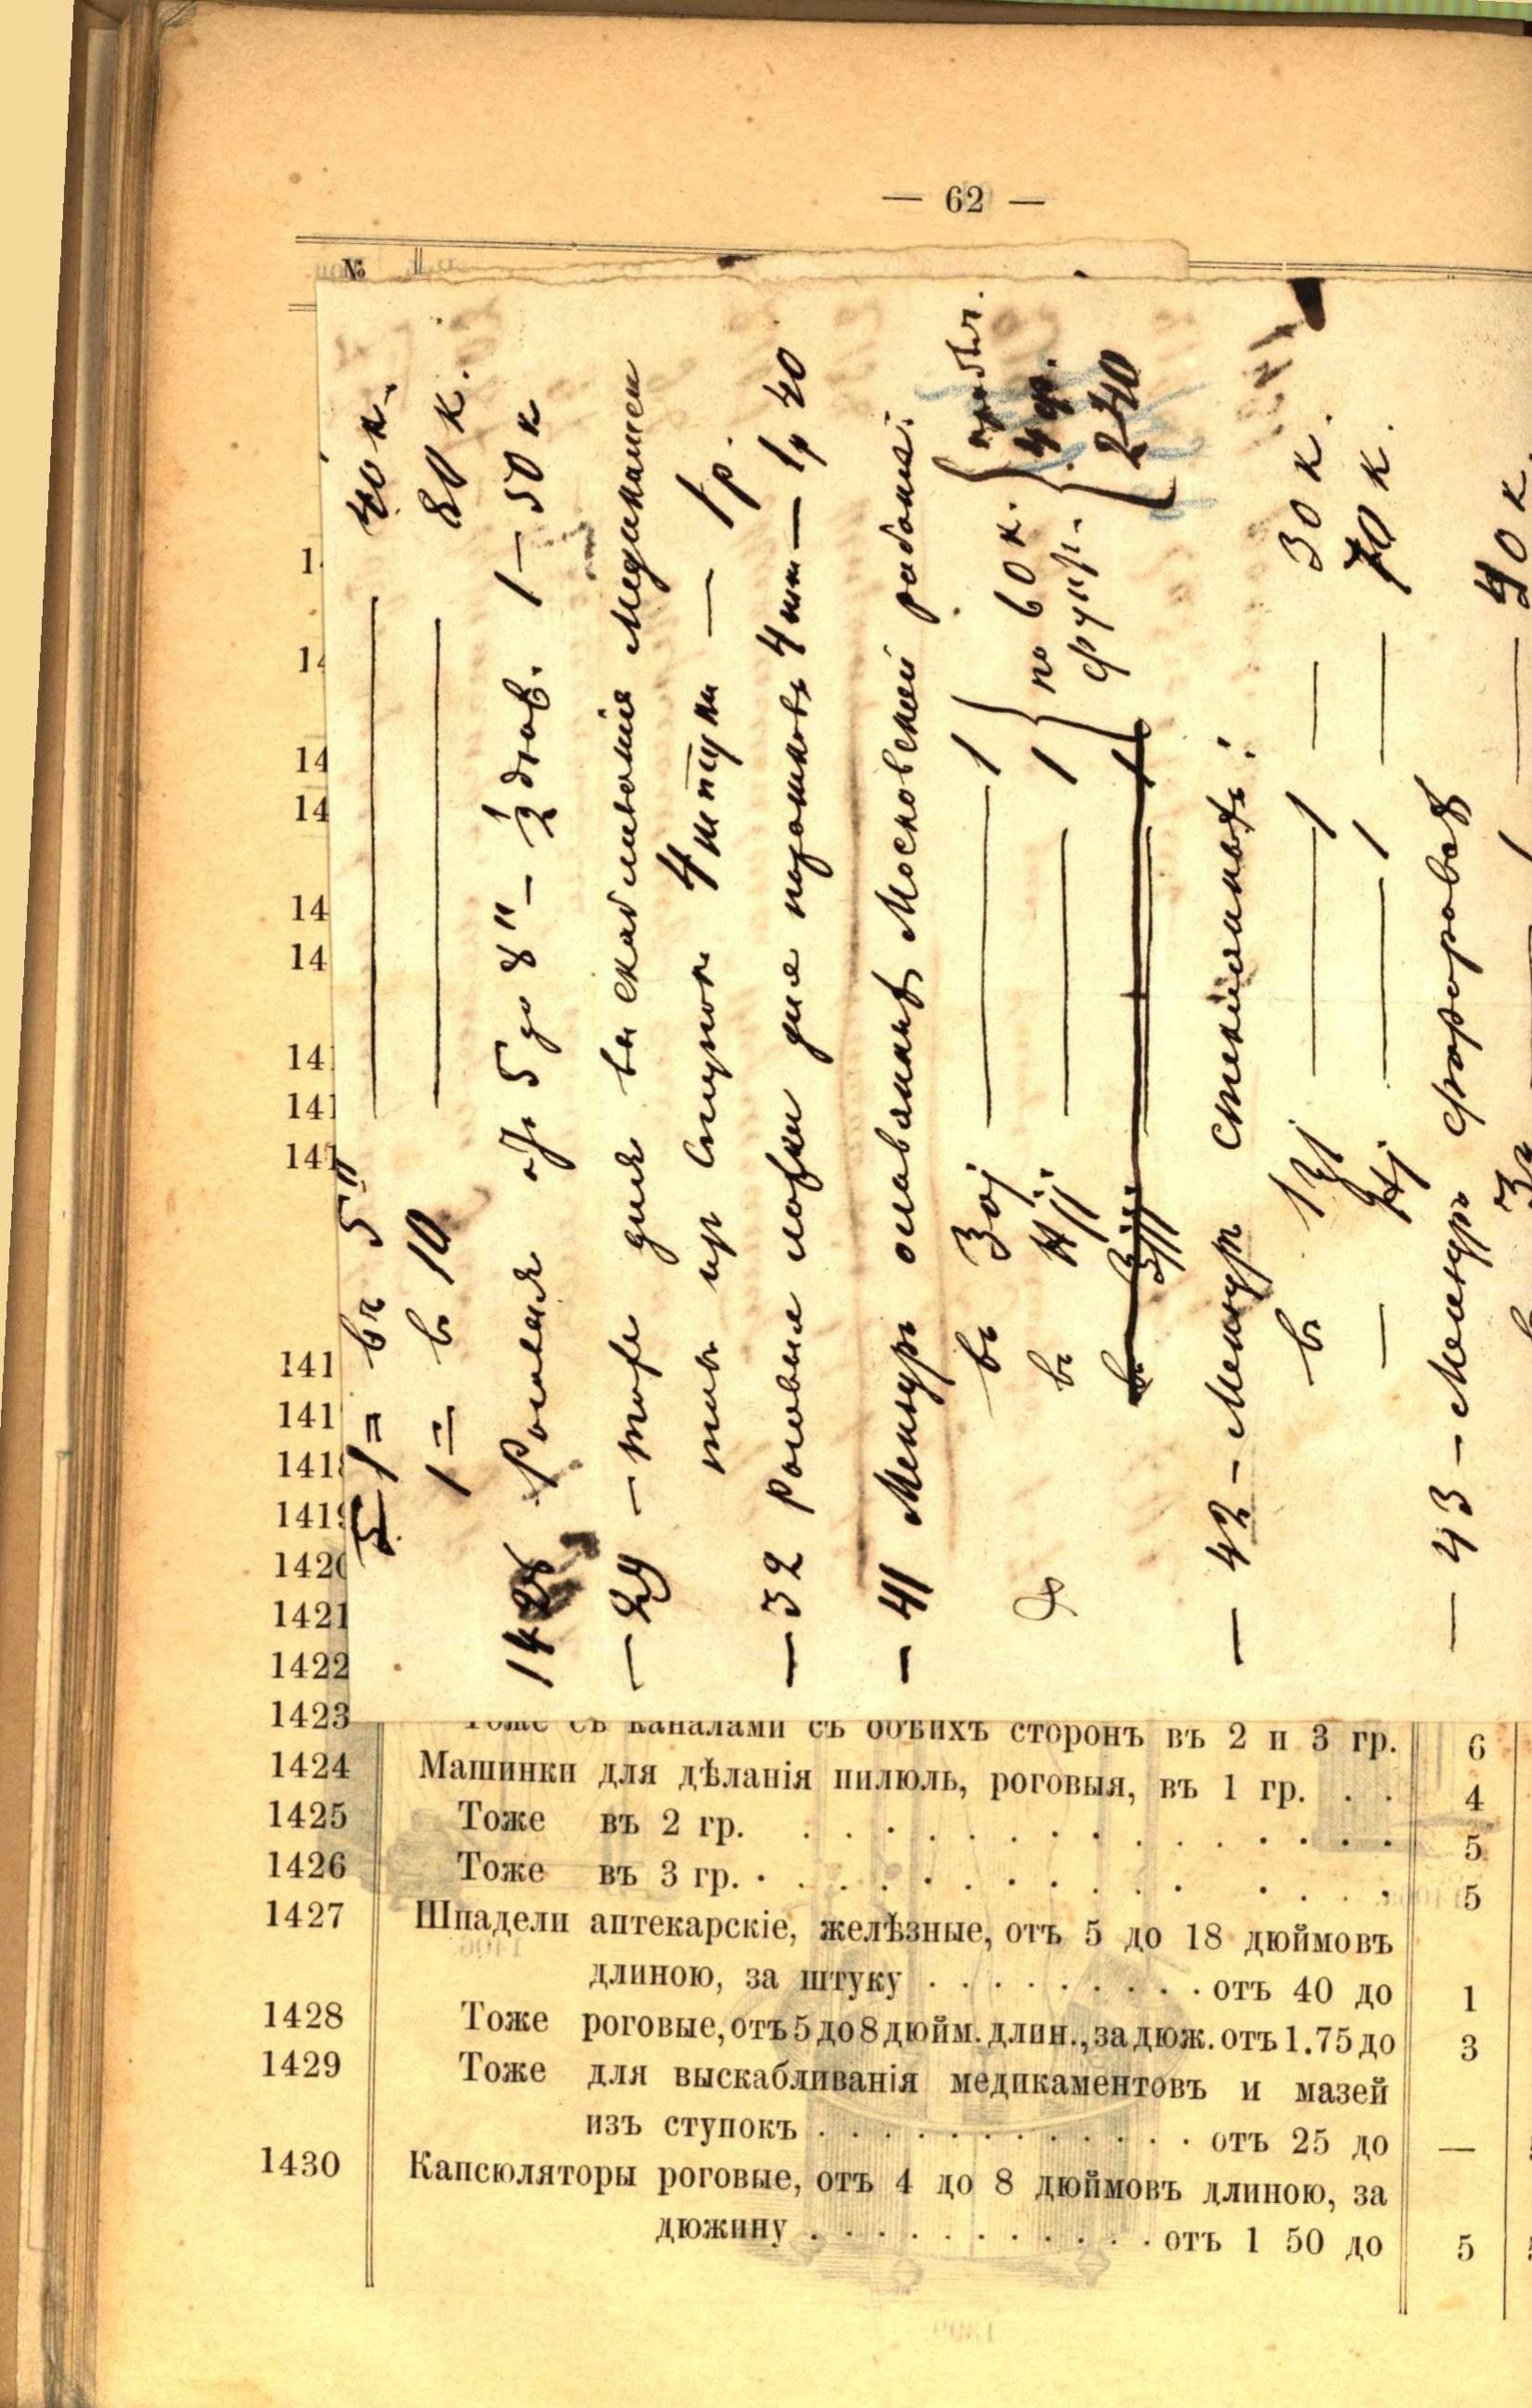 — 62 —
№
5 1 = въ 5" — 40 к.
1 = в 10 — 80 к.
1428 Роговыя отъ 5 до 8" — ½ дюж. 1 — 50 к
— 29 — тоже для выскабливанія Медикамен
товъ изъ ступок 4 штуки — 1 р.
— 32 Роговые ложки для порошковъ 4 шт — 1 р 40
— 41 Мензуръ оловянныхъ Московской работы.
въ ℥ 1
в 1 по 60 к.
фунт.
240
— 42 — Мензур стеклянныхъ:
в 1 — 30 к.
— 1 — 70 к.
— 43 — Мензуръ фарфоровыхъ
40 к.
141
141
1418
1419
1420
1421
1422
1423 Тоже съ каналами съ обѣихъ сторонъ въ 2 и 3 гр. 6
1424 Машинки для дѣланія пилюль, роговыя, въ 1 гр. . . 4
1425 Тоже въ 2 гр. . . . . . . . . . . . . . . . 5
1426 Тоже въ 3 гр. . . . . . . . . . . . . . . . 5
1427 Шпадели аптекарскіе, желѣзные, отъ 5 до 18 дюймовъ
длиною, за штуку . . . . . . . . . отъ 40 до 1
1428 Тоже роговые, отъ 5 до 8 дюйм. длин., за дюж. отъ 1.75 до 3
1429 Тоже для выскабливанія медикаментовъ и мазей
изъ ступокъ . . . . . . . . . . . . отъ 25 до —
1430 Капсюляторы роговые, отъ 4 до 8 дюймовъ длиною, за
дюжину . . . . . . . . . . . отъ 1 50 до 5